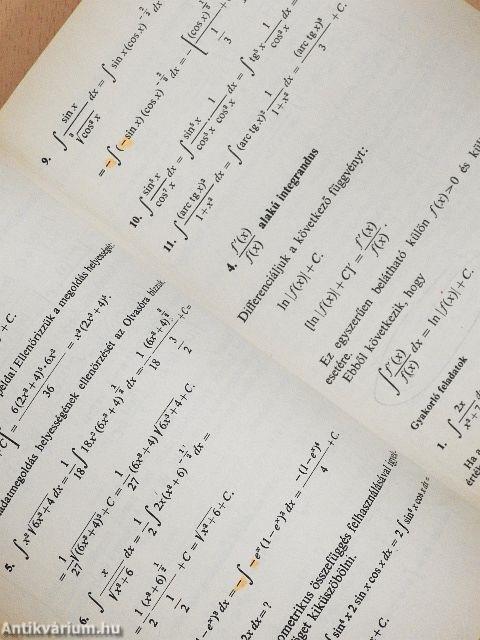 + C.
Ellenőrizzük a megoldás helyességét
= 6(2x³+4)⁵·6x² / 36 = x²(2x³+4)⁵.
adatmegoldás helyességének ellenőrzését az Olvasóra bízzuk
5. ∫ x²√(6x³+4) dx = 1/18 ∫ 18x²(6x³+4)^(1/2) dx = 1/18 · (6x³+4)^(3/2) / (3/2) + C =
= 1/27 √((6x³+4)³) + C = 1/27 (6x³+4)√(6x³+4) + C.
6. ∫ x/√(x²+6) dx = 1/2 ∫ 2x(x²+6)^(-1/2) dx =
= 1/2 · (x²+6)^(1/2) / (1/2) + C = √(x²+6) + C.
(1−eˣ)³ dx = −∫ −eˣ(1−eˣ)³ dx = −(1−eˣ)⁴ / 4 + C.
x dx = ?
összefüggés felhasználásával
kiküszöbölni.
2 sin x cos x dx = 2 ∫
9. ∫ sin x / ³√(cos² x) dx = ∫ sin x (cos x)^(-2/3) dx
= −∫ (−sin x)(cos x)^(-2/3) dx = −[(cos x)^(1/3) / (1/3)
10. ∫ sin⁵ x / cos⁷ x dx = ∫ sin⁵ x / cos⁵ x · 1 / cos² x dx = ∫ tg⁵ x · 1 / cos² x dx =
11. ∫ (arc tg x)² / (1+x²) dx = ∫ (arc tg x)² · 1 / (1+x²) dx = (arc tg x)³ / 3 + C.
4. f′(x) / f(x) alakú integrandus
Differenciáljuk a következő függvényt:
ln |f(x)| + C.
[ln |f(x)| + C]′ = f′(x) / f(x).
Ez egyszerűen belátható külön f(x)>0 és
esetére.
Ebből következik, hogy
∫ f′(x) / f(x) dx = ln |f(x)| + C.
Gyakorló feladatok
1. ∫ 2x / x²+7
Ha a
Antikvárium.hu